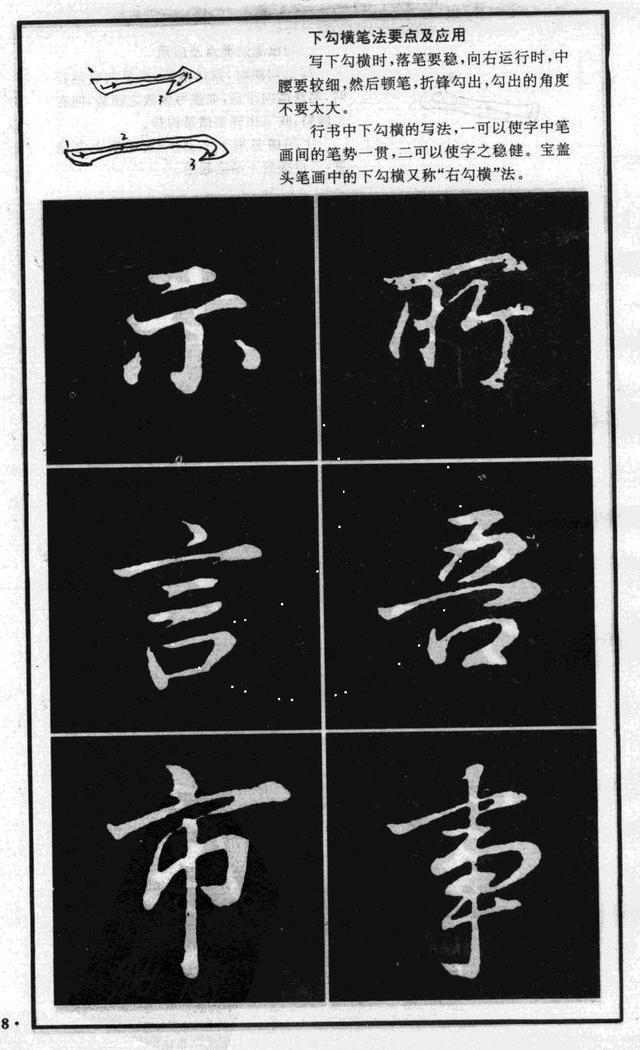 下勾横笔法要点及应用
写下勾横时,落笔要稳,向右运行时,中
腰要较细,然后顿笔,折锋勾出,勾出的角度
不要太大。
行书中下勾横的写法,一可以使字中笔
画间的笔势一贯,二可以使字之稳健。宝盖
头笔画中的下勾横又称“右勾横”法。
1 2 3
1 2 3
示 所
言 吾
市 事
8·